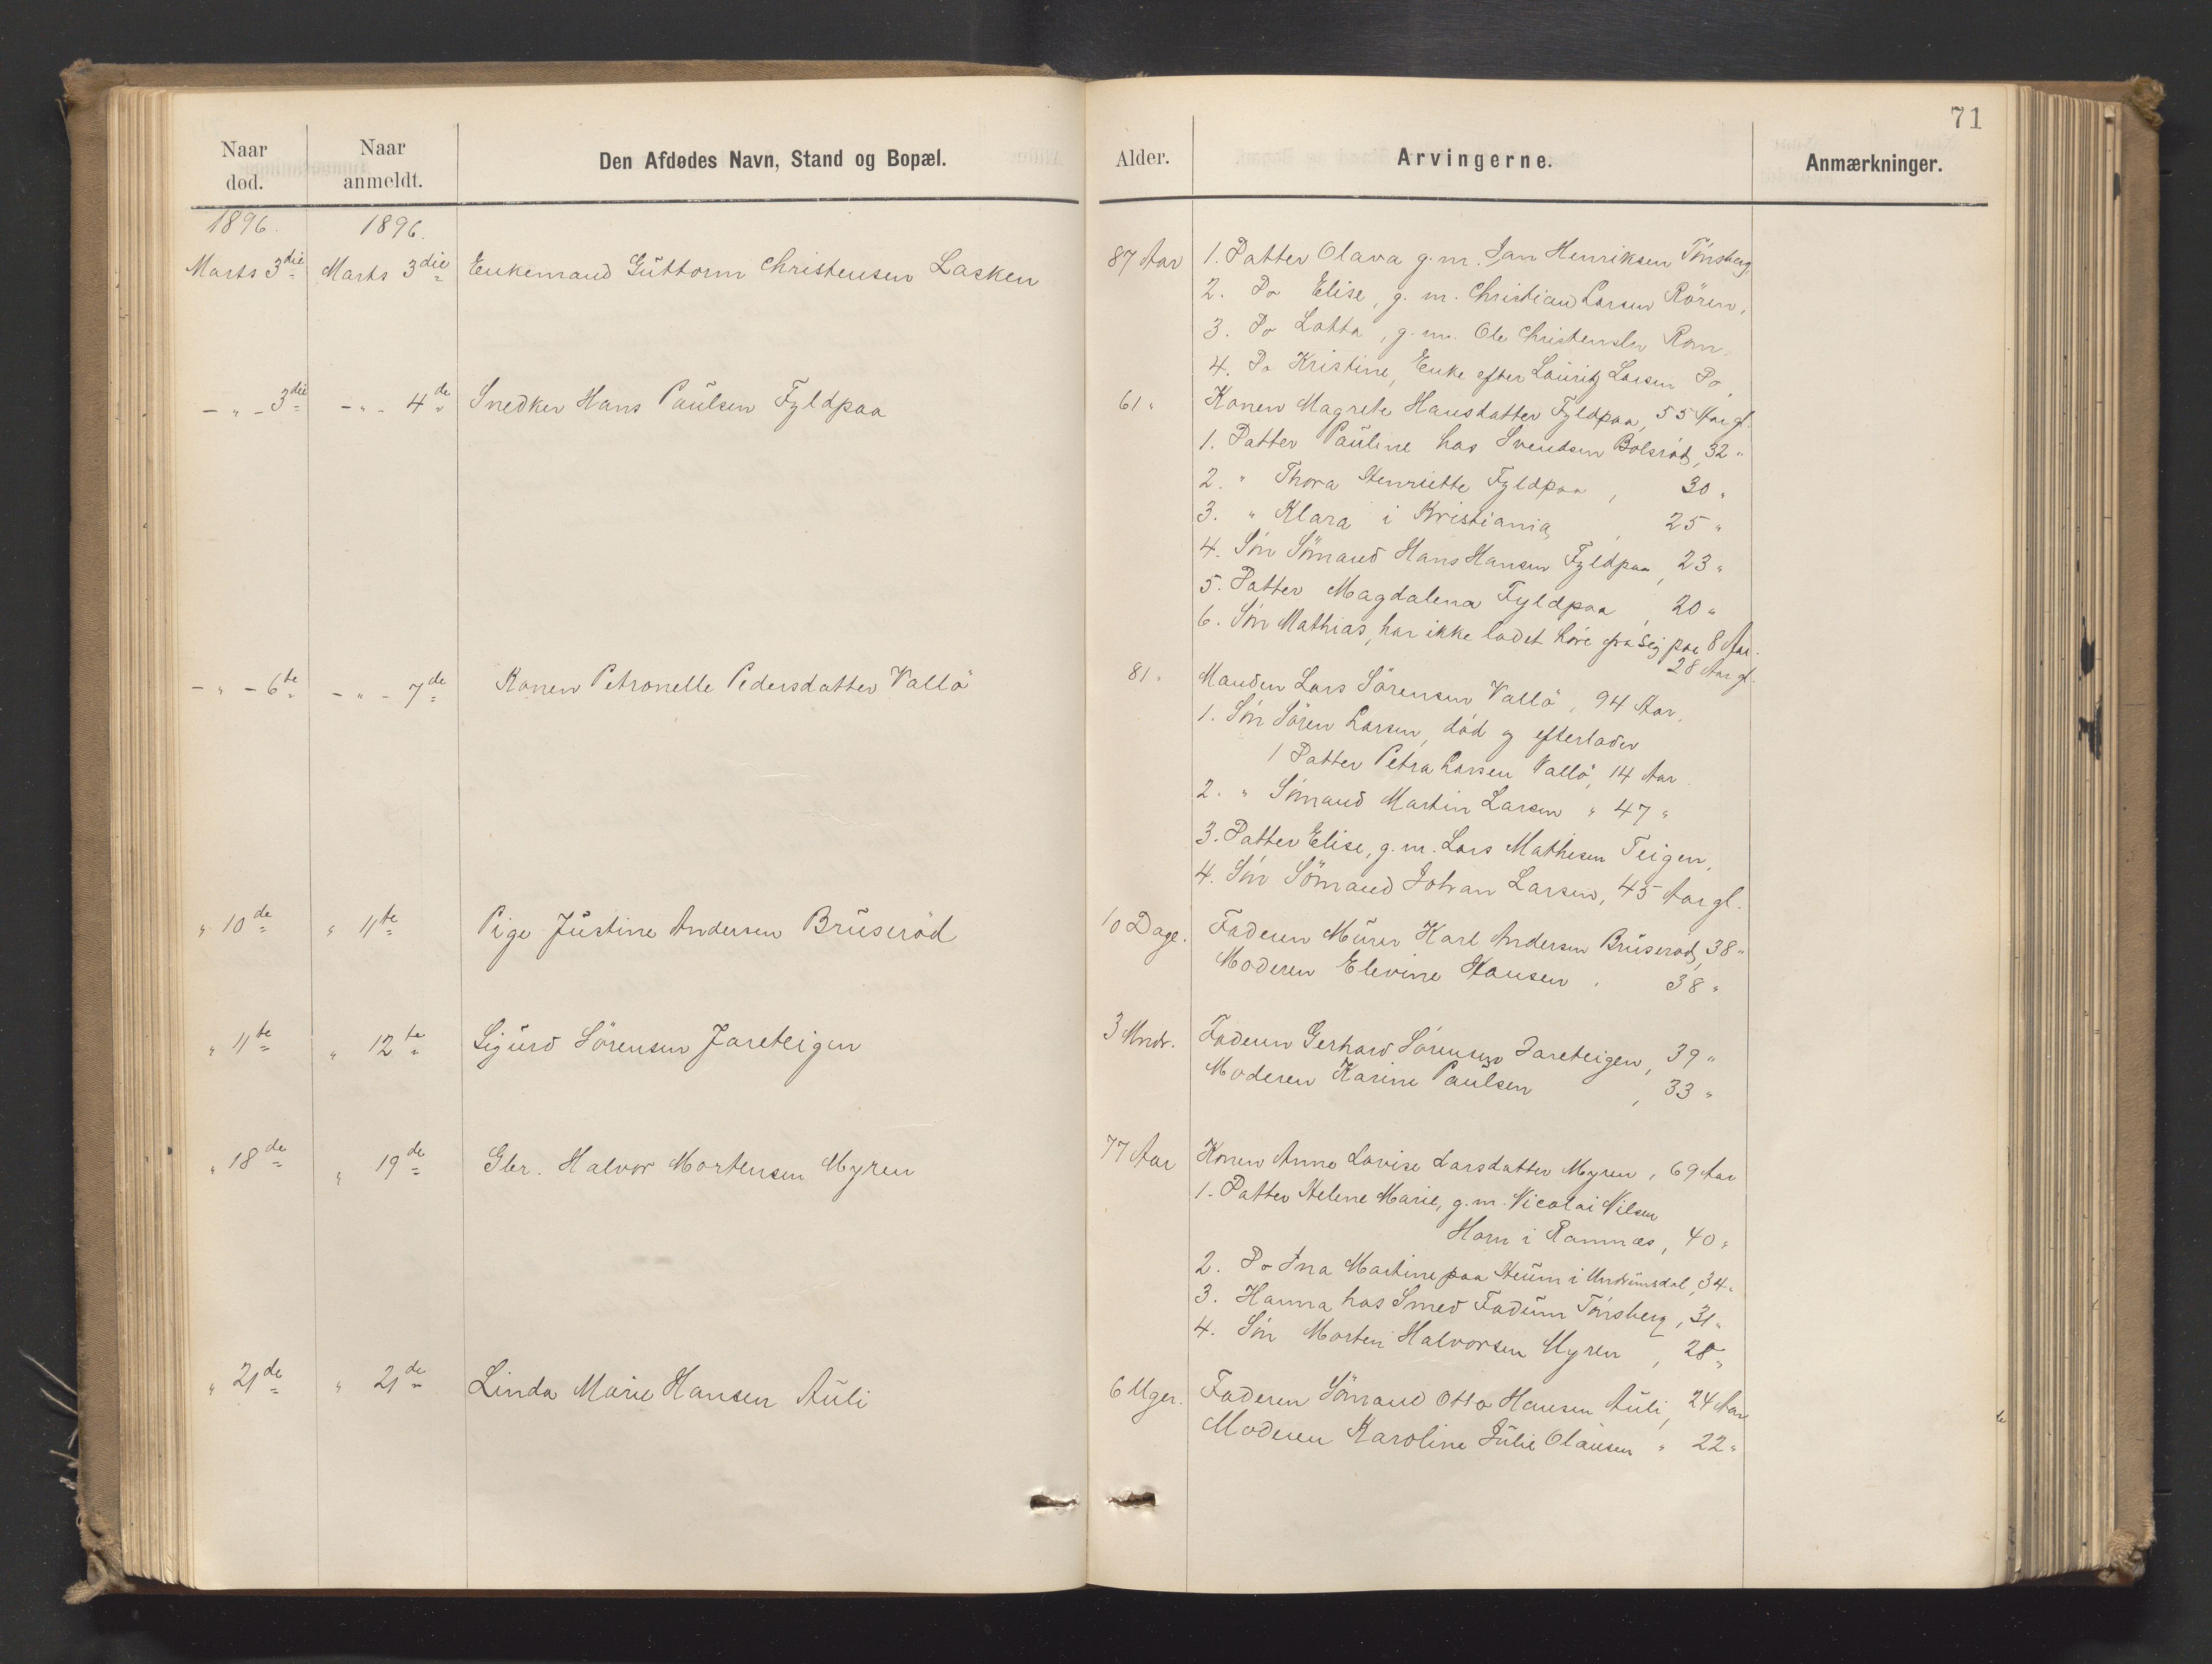 71
Naar død.
Naar anmeldt.
Den Afdødes Navn, Stand og Bopæl.
Alder.
Arvingerne.
Anmærkninger.
1896. 1896.
Marts 3die Marts 3die Enkemand Guttorm Christensen Lasken 87 Aar
1. Datter Olava g. m. Jan Henriksen Tønsberg,
2. Do Elise, g. m. Christian Larsen Rören,
3. Do Lotta, g. m. Ole Christensen Rom,
4. Do Kristine, Enke efter Lauritz Larsen Do,
– " – 3die – " – 4de Snedker Hans Paulsen Fyldpaa 61 "
Konen Magrete Hansdatter Fyldpaa, 55 Aar gl.
1. Datter Pauline hos Svendsen Bolsrød, 32 "
2. " Thora Henriette Fyldpaa, 30 "
3. " Klara i Kristiania, 25 "
4. Søn Sömand Hans Hansen Fyldpaa, 23 "
5. Datter Magdalena Fyldpaa, 20 "
6. Søn Mathias, har ikke ladet høre fra sig paa 8 Aar.
28 Aar gl.
– " – 6te – " – 7de Konen Petronelle Pedersdatter Vallö 81 "
Manden Lars Sörensen Vallö, 94 Aar.
1. Søn Sören Larsen, död og efterlader
1 Datter Petra Larsen Vallö, 14 Aar.
2. " Sömand Martin Larsen " 47 "
3. Datter Elise, g. m. Lars Mathisen Teigen,
4. Søn Sömand Johan Larsen, 45 Aar gl.
" 10de " 11te Pige Justine Andersen Bruseröd 10 Dage.
Faderen Murer Karl Andersen Bruserød, 38 "
Moderen Elevine Hansen, 38 "
" 11te " 12te Sigurd Sörensen Jareteigen 3 Mndr.
Faderen Gerhard Sörensen Jareteigen, 39 "
Moderen Karine Paulsen, 33 "
" 18de " 19de Gbr. Halvor Mortensen Myren 77 Aar
Konen Anne Lovise Larsdatter Myren, 69 Aar
1. Datter Helene Marie, g. m. Nicolai Nilsen
Horn i Ramnæs, 40 "
2. Do Ina Martine paa Heum i Undrumsdal, 34 "
3. Hanna hos Smed Fadum Tønsberg, 31 "
4. Søn Morten Halvorsen Myren, 28 "
" 21de " 21de Linda Marie Hansen Auli 6 Uger.
Faderen Sömand Otto Hansen Auli, 24 Aar
Moderen Karoline Julie Olausen " 22 "